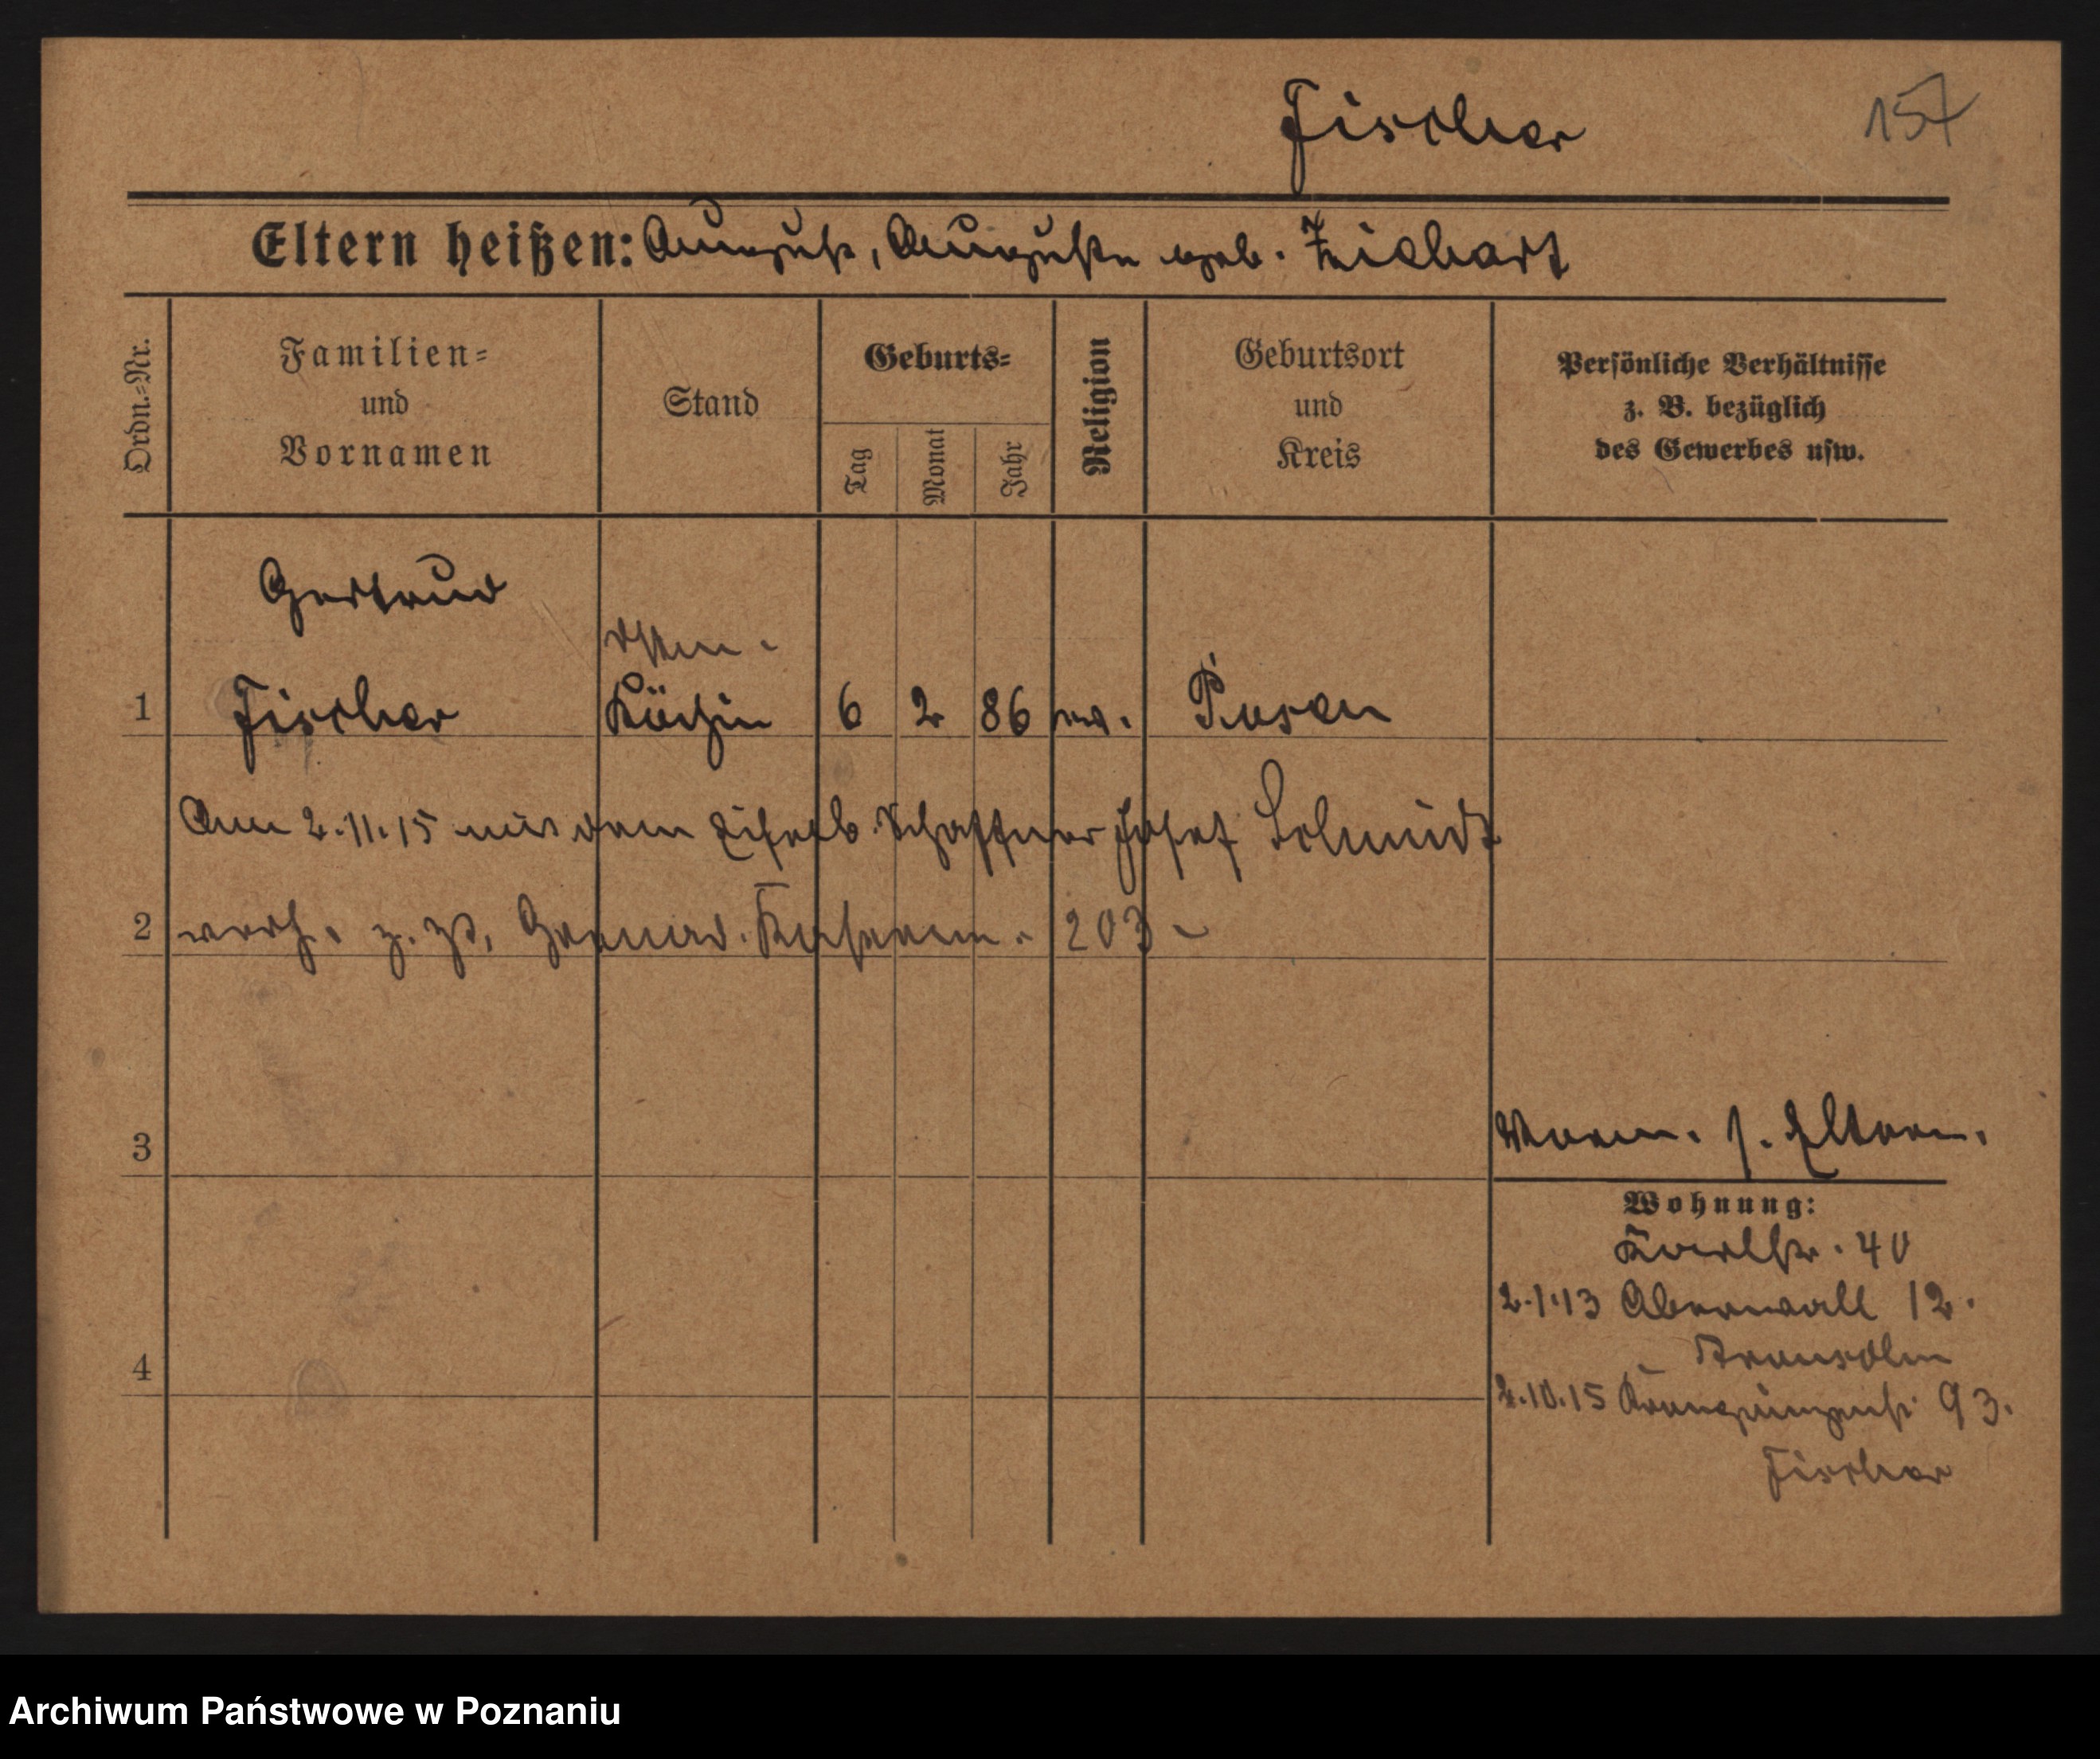 Fischer 157
Eltern heißen: August, Auguste geb. Ziebart
Ordn.-Nr.
Familien-
und
Vornamen
Stand
Geburts-
Tag
Monat
Jahr
Religion
Geburtsort
und
Kreis
Persönliche Verhältnisse
z. B. bezüglich
des Gewerbes usw.
Gertrud
1 Fischer Köchin 6 2 86 ev. Posen
Am 2.11.15 mit dem Eisenb. Schaffner Josef Schmidt
2 verh. z. Zt. Grenad. Kasern. 203
3
Worm. s. Eltern.
Wohnung:
40
2.1.13 12.
4
2.10.15 93.
Fischer
Archiwum Państwowe w Poznaniu